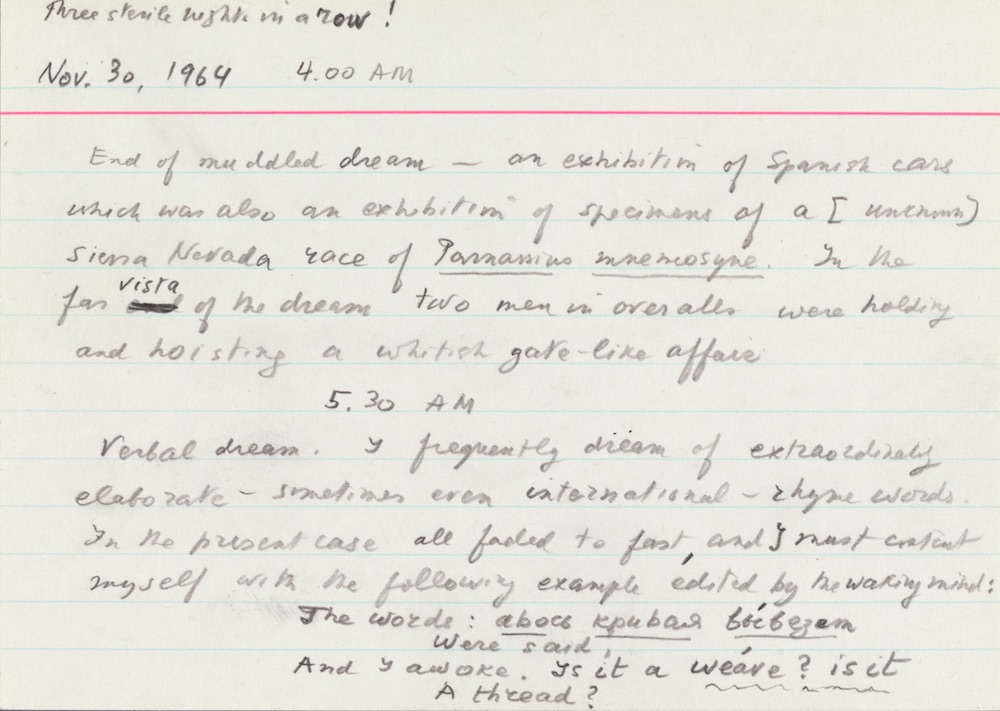 Three sterile nights in a row!
Nov. 30, 1964 4.00 AM
End of muddled dream — an exhibition of Spanish cars
which was also an exhibition of specimens of a [unknown)
Sierra Nevada race of Parnassius mnemosyne. In the
far vista of the dream two men in overalls were holding
and hoisting a whitish gate-like affair
5.30 AM
Verbal dream. I frequently dream of extraordinarily
elaborate – sometimes even international – rhyme words.
In the present case all faded to fast, and I must content
myself with the following example edited by the waking mind:
The words: авось кривая вывезет
Were said,
And I awoke. Is it a weave? is it
A thread?